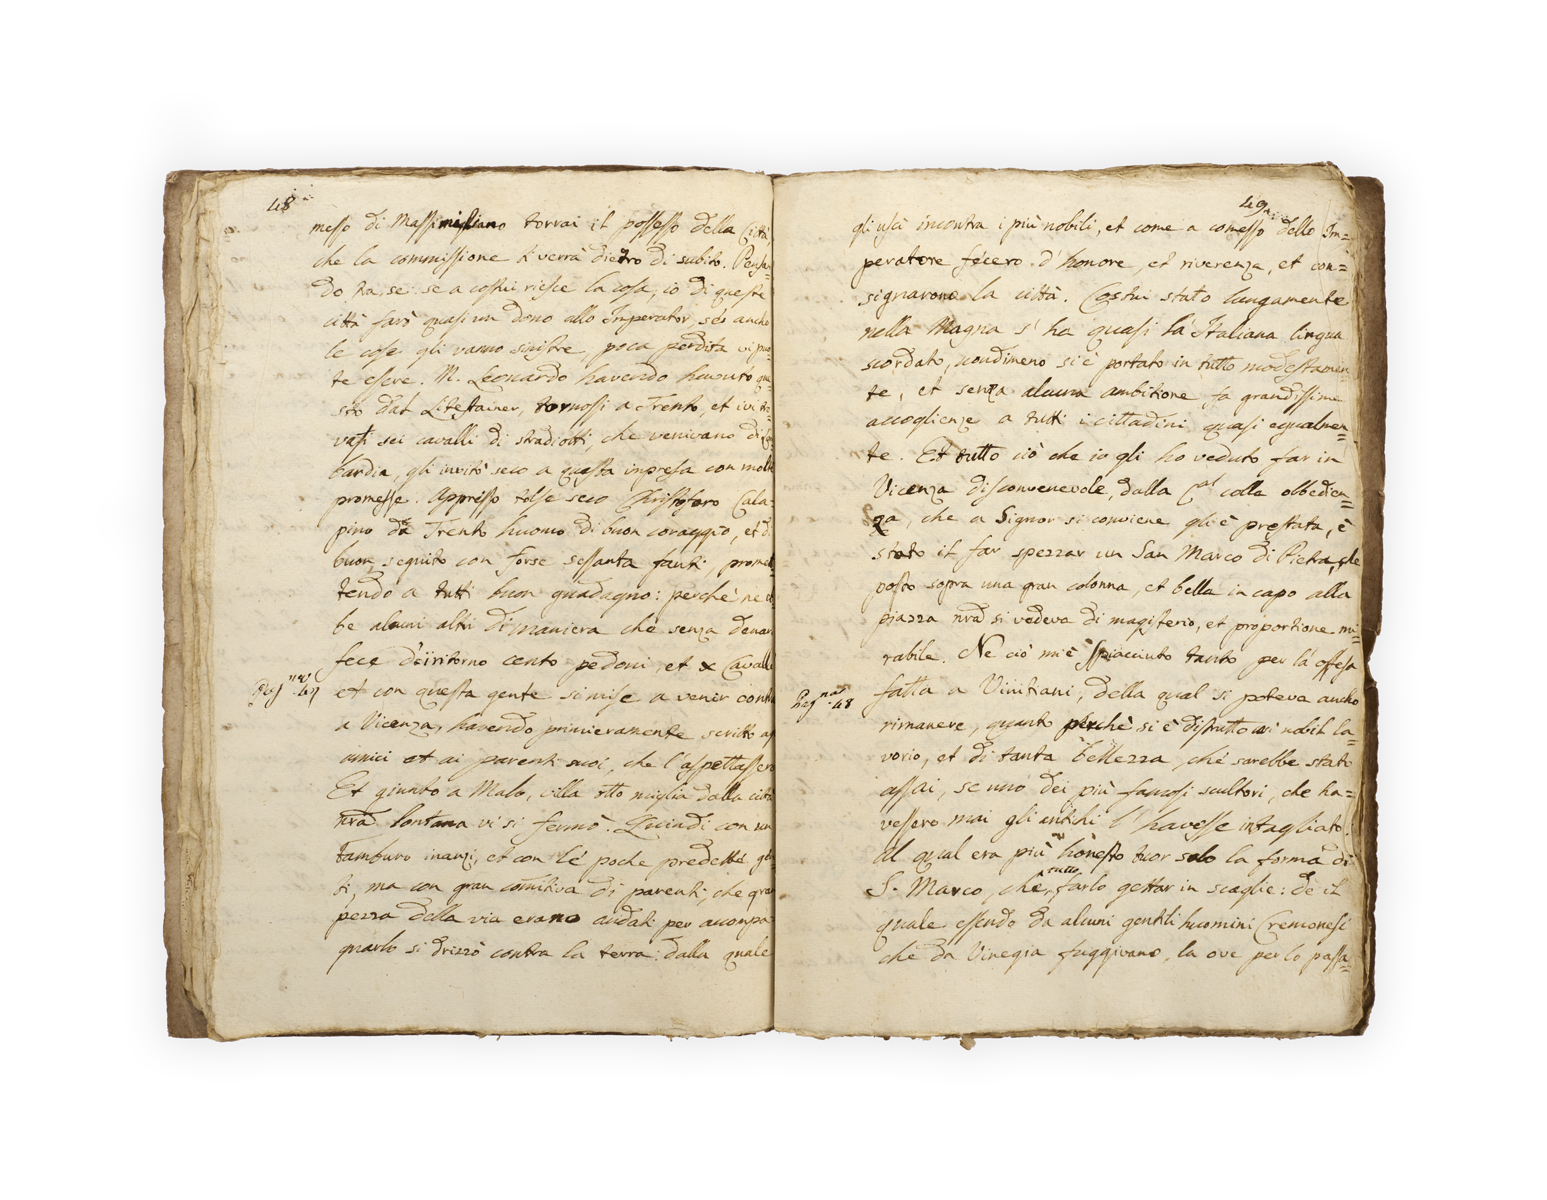 48
messo di Massimigliano torrai il possesso della Città,
che la commissione ti verrà dietro di subito. Pensa-
do tra se: se a costui riesce la cosa, io di queste
città farò quasi un dono allo Imperator se anche
le cose gli vanno sinistre, poca perdita vi puo-
te essere. M. Leonardo havendo havuto que-
sto dal Litestainer, tornossi a Trento, et ivi tro-
vati sei cavalli di stradiotti, che venivano di Lom-
bardia, gli invitò seco a questa impresa con molte
promesse. Appresso tolse seco Christoforo Cala-
pino da Trento huomo di buon coraggio, et di
buon seguito con forse sessanta fanti, promet-
tendo a tutti buon guadagno: perché ne eb-
be alcuni altri di maniera che senza denari
fece d'eiritorno cento pedoni, et x Cavalli
Pag.na 47
et con questa gente si mise a venir contra
a Vicenza, havendo primieramente scritto agl
amici et ai parenti suoi, che l'aspettassero
Et giunto a Malo, villa otto miglia dalla città
nrã lontana vi si fermò. Quindi con un
tamburo inanzi, et con le poche predette gen-
ti, ma con gran comitiva di parenti, che gran
pezza della via erano andati per accompa-
gnarlo si drizzò contra la terra: dalla quale
49
gli uscì incontra i più nobili, et come a comesso dello Im=
peratore fecero d'honore, et riverenza, et con=
signarono la città. Costui stato lungamente
nella Magna s'ha quasi la Italiana lingua
scordato, nondimeno si è portato in tutto modestamen=
te, et senza alcuna ambitione, fa grandissime
accoglienze a tutti i cittadini quasi egualmen=
te. Et tutto ciò che io gli ho veduto far in
Vicenza disconvenevole, dalla qal colla obbedien=
za, che a Signor si conviene gli è prestata, è
stato il far spezzar un San Marco di Pietra, che
posto sopra una gran colonna, et bella in capo alla
piazza nrã si vedeva di magisterio, et proportione mi=
rabile. Ne ciò mi è spiacciuto tanto per la offesa
Pag.na 48
fatta a Vinitiani, della qual si poteva anche
rimanere, quanto perchè si è distrutto un nobil la=
vorio, et di tanta bellezza, che sarebbe stato
assai, se uno dei più famosi scultori, che ha=
vessero mai gli antichi l'havesse intagliato.
Al qual era più honesto tuor solo la forma di
S. Marco, che tutto farlo gettar in scaglie: de il
quale essendo da alcuni gentili huomini Cremonesi
che da Vinegia fuggivano, la ove per lo passa=